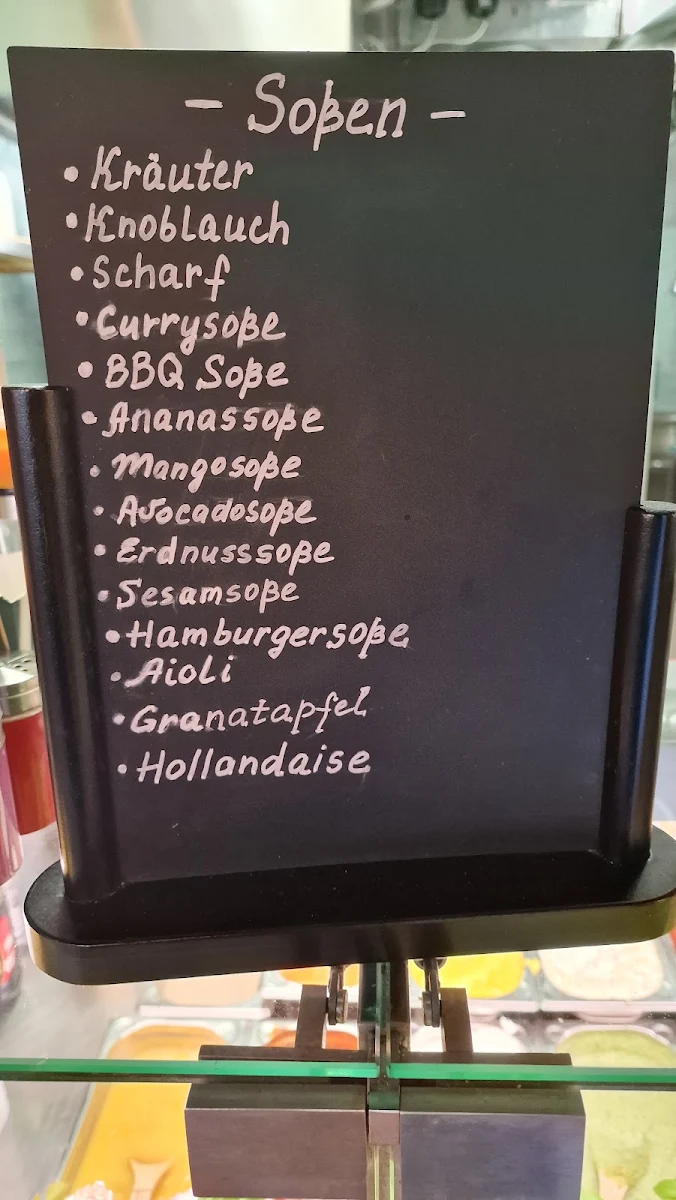 - Soßen -
• Kräuter
• Knoblauch
• Scharf
• Currysoße
• BBQ Soße
• Ananassoße
• Mangosoße
• Avocadosoße
• Erdnusssoße
• Sesamsoße
• Hamburgersoße
• Aioli
• Granatapfel
• Hollandaise